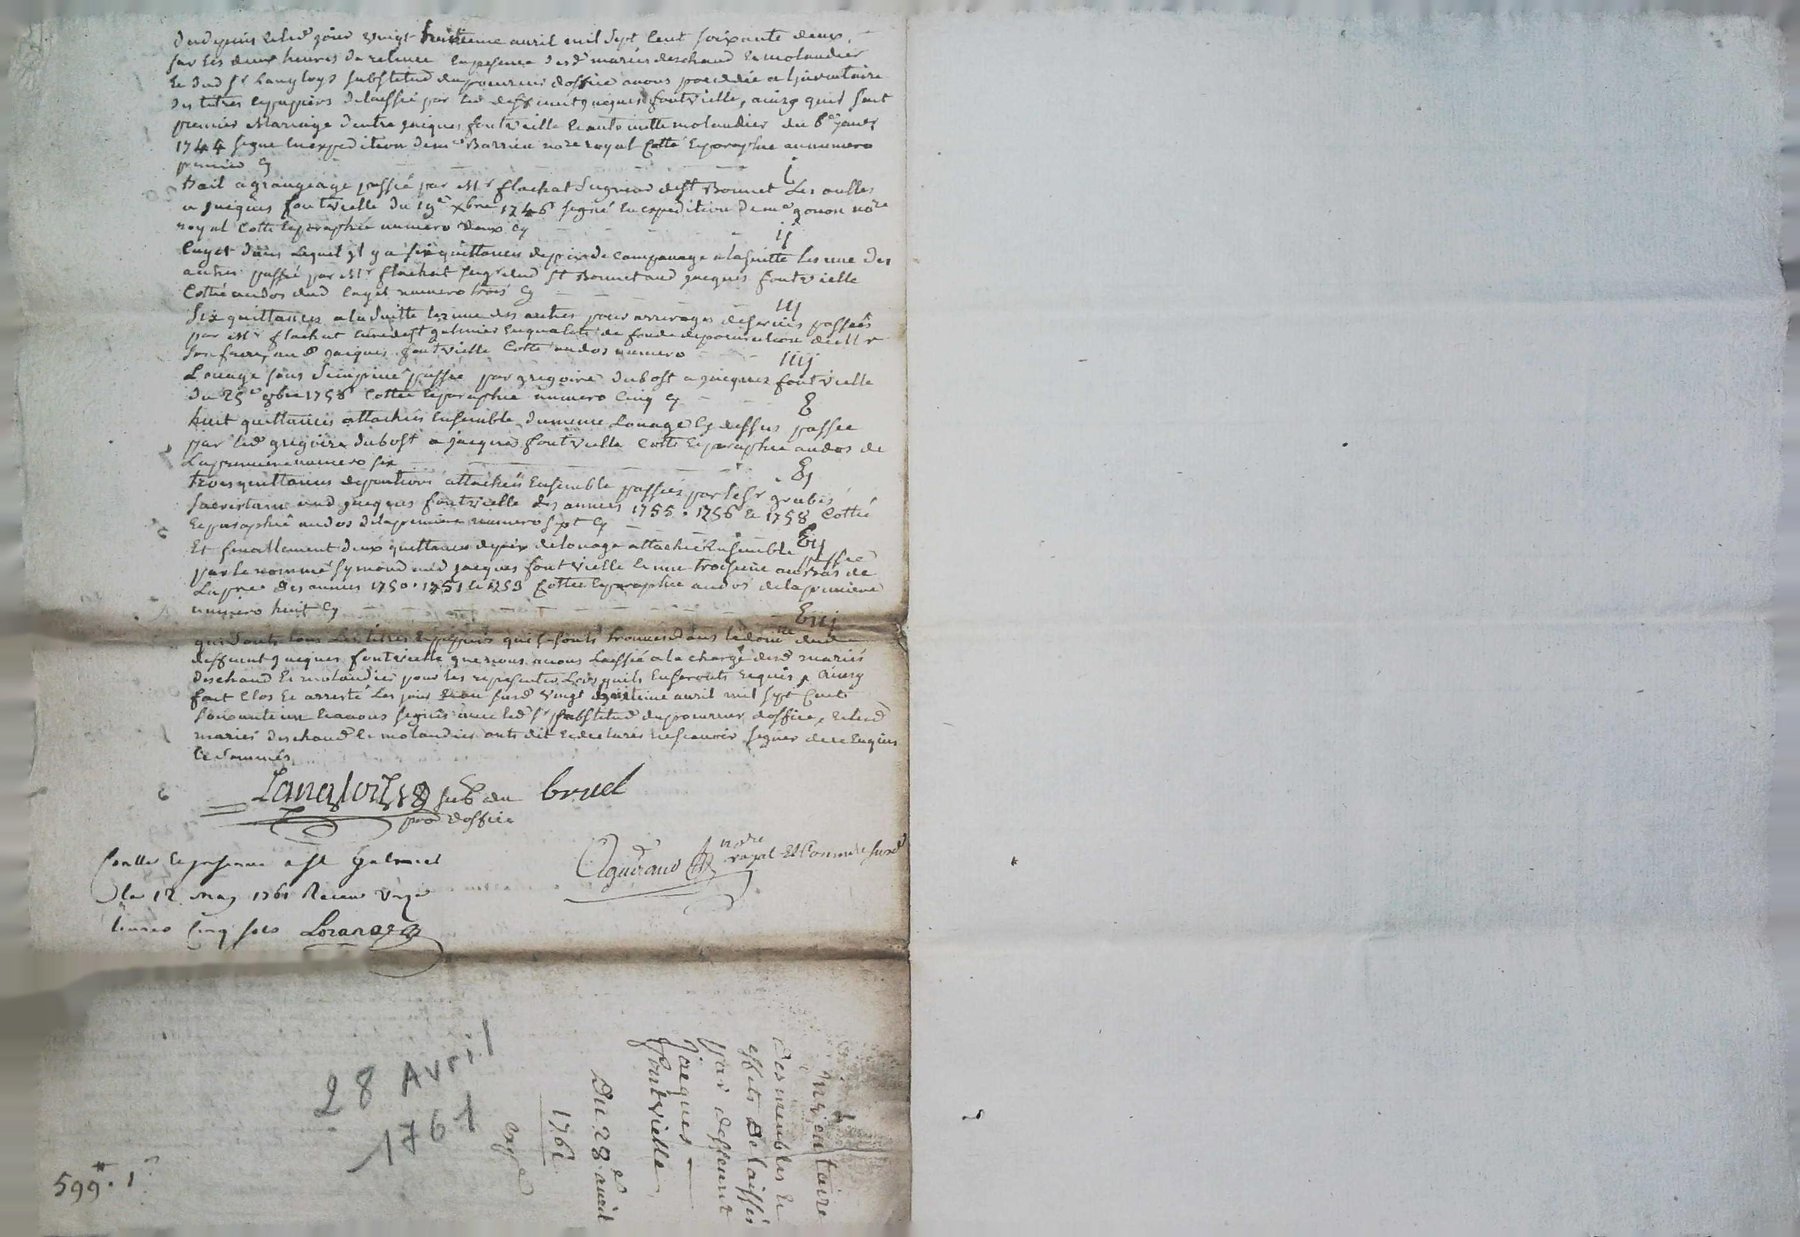 Dudepuis ledit jour vingt huitieme avril mil sept cent soixante deux
sur les deux heures de relevee En presence desd mariés deschaud Et molandier
Et dud Sr Langloys substitud du procureur doffice avons procedée a Linventaire
des titres Et papiers delaissié par led deffunt jacques fontvielle, ainsy quil suit
premier Mariage dentre jacques fontvieille Et antoinette molandier du 6e janvr
1744 signé En expedition de me Barrieu nore royal Cotté Et paraphé au numero
premier Cy
i
Bail a grangeage passié par Mr flachat Seigneur de St Bonnet Les oulles
a jacques fontvielle du 19e xbre 1746 signé En expedition de me gonon nore
royal Cotté Et paraphé numero deux Cy
ij
Cayet dans Lequel il y a six quittances de prix de a la suitte Les une des
autres passié par Mr flachat seigr dud St Bonnet aud jacques fontvielle
Cottée au dos dud Cayet numero trois Cy
iij
Six quittances a la suitte les une des autres pour arrerages de servis passées
par Mr flachat curé de St galmier En qualité de fondé de procuration de Mr
son frere, au d jacques fontvielle Cotté au dos numero
iiij
Louage sous Seing privé passée par gregoire dubost a jacques fontvielle
du 25e 1758 Cottée Et paraphée numero Cinq Cy
E
huit quittances attachées Ensemble du meme Louage Cy dessus passée
par led gregoire dubost a jacques fontvielle Cotté Et paraphée au dos de
La premiere numero six
Ej
trois quittances attachées Ensemble passées par le Sr grubis
Secretaire aud jacques fontvielle des années 1755. 1756 Et 1758 Cotté
Et paraphé au dos de la premiere numero sept Cy
Eij
Et finallement deux quittances de prix de louage attachée Ensemble passée
par le nommé Symond aud jacques fontvielle Et une troisieme au bas de
La pre des années 1750. 1751 Et 1753 Cottée Et paraphée au dos de la premiere
numero huit Cy
Eiij
qui sont tous Les titres Et papiers qui se sont trouvé dans le domle dud
deffunt jacques fontvielle que nous avons Laissié a la charge desd mariés
deschaud Et molandier pour les representer Lors quils En seront requis, Ainsy
fait Clos Et arresté Les jour Et an susd vingt huitieme avril mil sept Cent
soixante un Et avons signés avec led Sr substitud du procureur doffice, Et lesd
mariés deschaud Et molandier ont dit Et declarés ne scavoir signer de ce Enquis
Et sommés
Langloys sub du bruel
pro doffice
nore
royal Et Commre susd
Conllé Et a St Galmier
le 12 May 1761 Receu
livres Cinq sols Lorange
28 Avril
1761
599. 1
Inventaire
Des meubles Et
effets Delaissés
par deffunt
Jacques
fontvielle
Du 28e avril
1761
expd